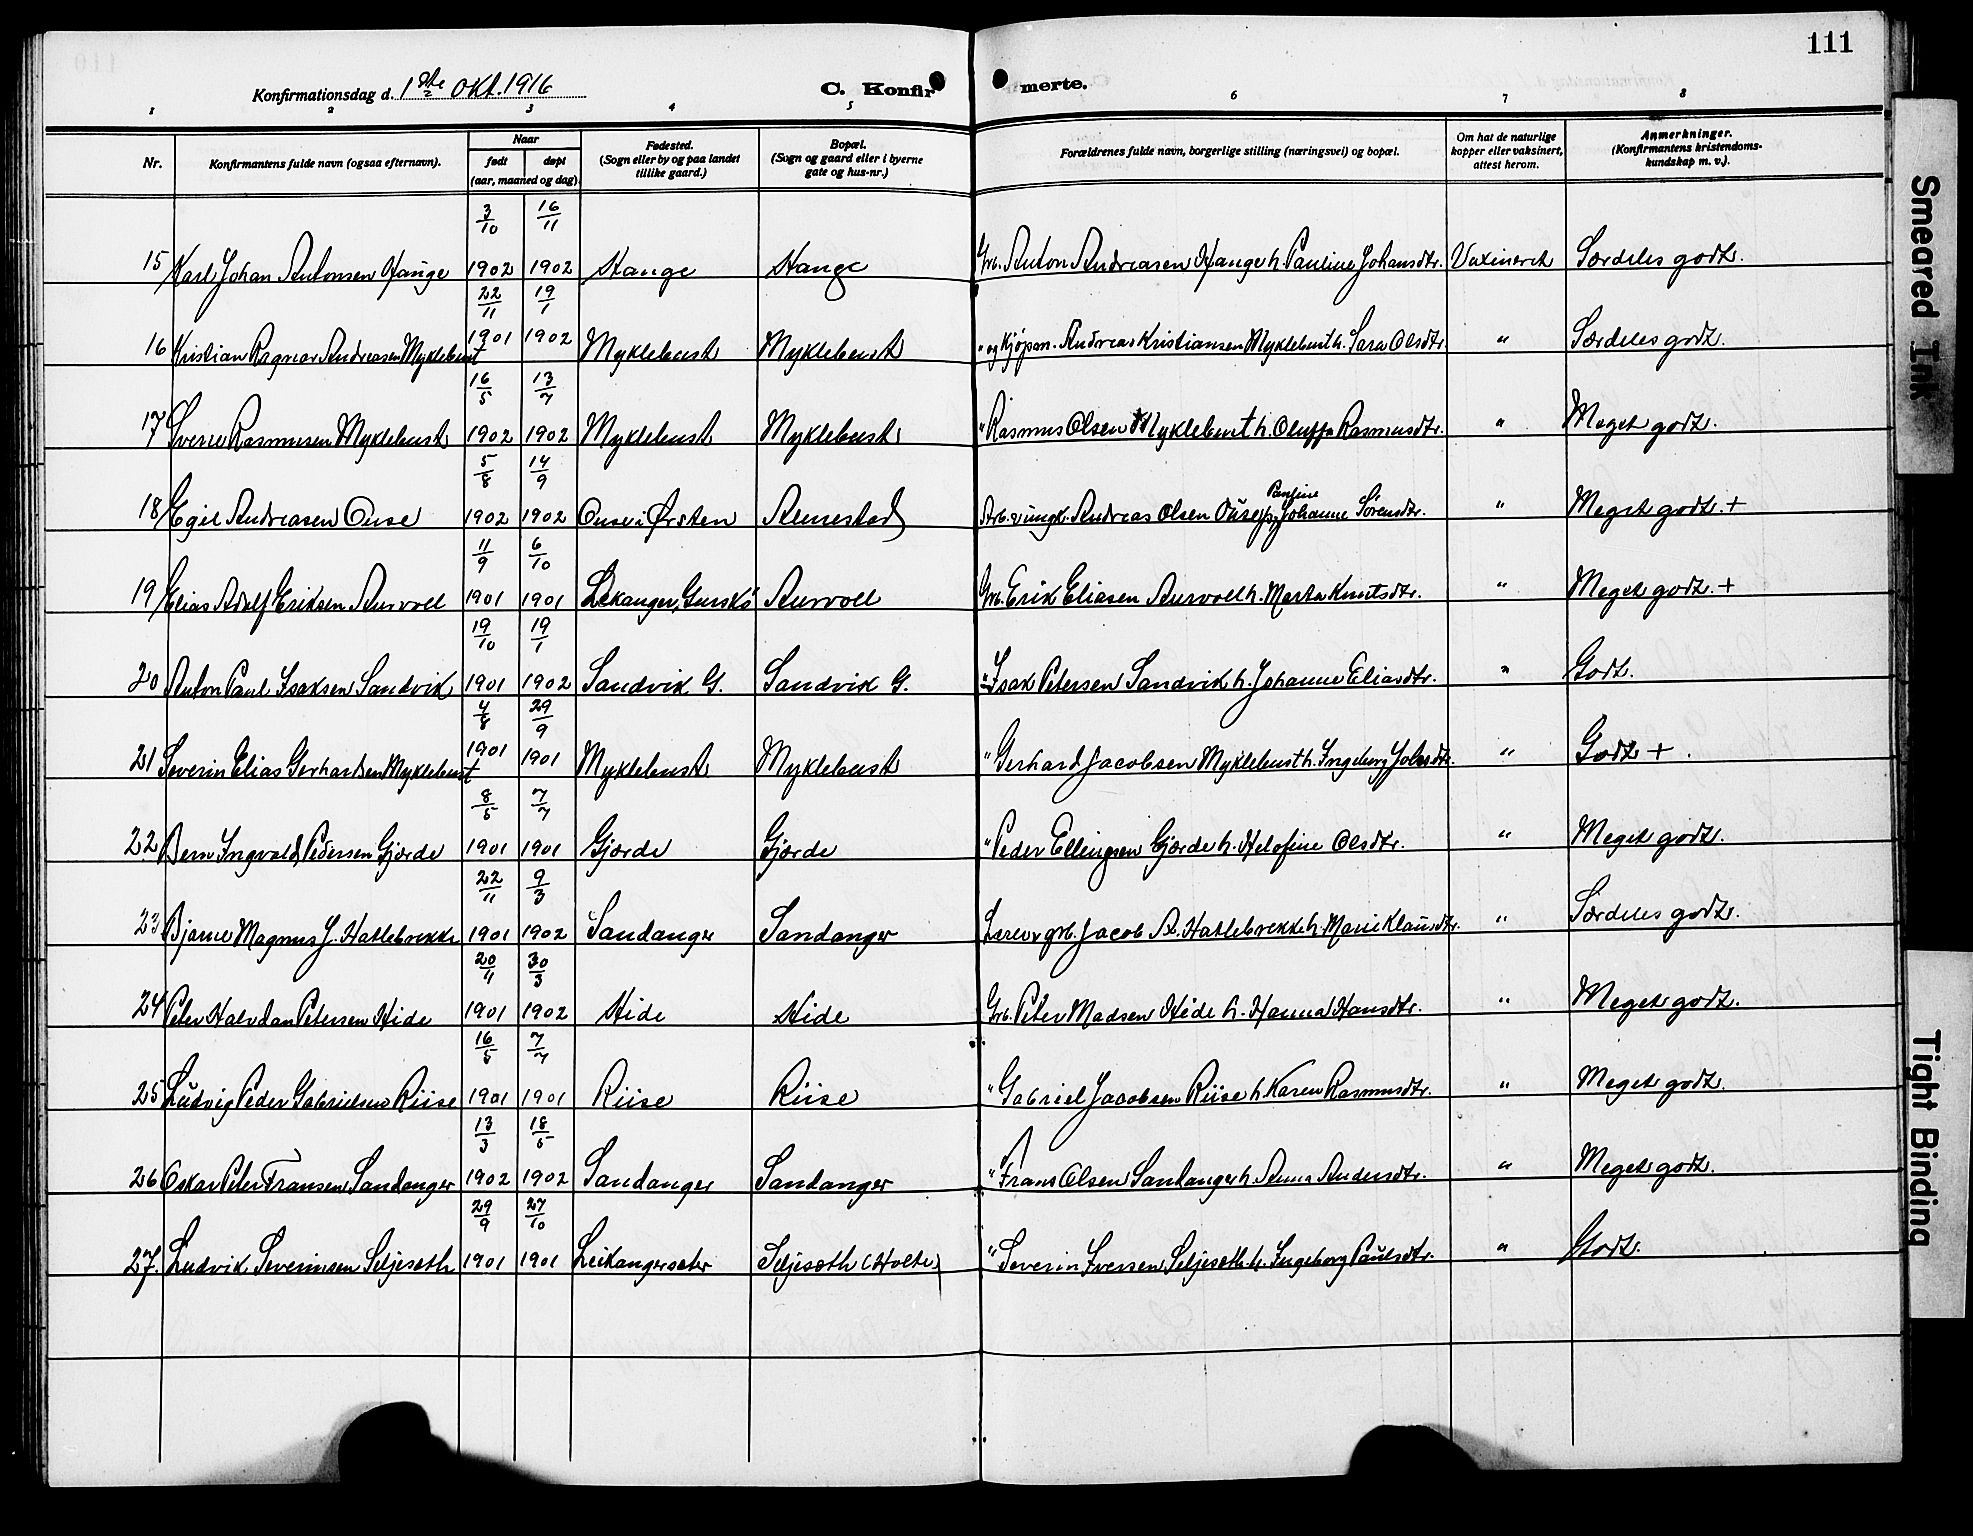 111
Konfirmationsdag d. 1ste Okt. 1916
C. Konfirmerte.
1 2 3 4 5 6 7 8
Nr. Konfirmantens fulde navn (ogsaa efternavn). Naar født døpt (aar, maaned og dag) Fødested. (Sogn eller by og paa landet tillike gaard.) Bopæl. (Sogn og gaard eller i byerne gate og hus-nr.) Forældrenes fulde navn, borgerlige stilling (næringsvei) og bopæl. Om hat de naturlige kopper eller vaksinert, attest herom. Anmerkninger. (Konfirmantens kristendomskundskap m. v.).
15 Karl Johan Antonsen Hauge 3/10 1902 16/11 1902 Hauge Hauge Grb. Anton Andreasen Hauge h. Pauline Johansdtr. Vaxineret Særdeles godt.
16 Kristian Ragnar Andreasen Myklebust 22/11 1901 19/1 1902 Myklebust Myklebust " og Kjøpm. Andreas Kristiansen Myklebust h. Sara Olsdtr. " Særdeles godt.
17 Sverre Rasmusen Myklebust 16/5 1902 13/7 1902 Myklebust Myklebust " Rasmus Olsen Myklebust h. Oluffa Rasmusdtr. " Meget godt.
18 Egil Andreasen Ouse 5/8 1902 14/9 1902 Ouse i Ørsten Amestad Arb. v ungk. Andreas Olsen Ouse p. Pauline Johanne Sørensdtr. " Meget godt. +
19 Elias Adolf Eriksen Aurvoll 11/9 1901 6/10 1901 Lekanger, Gurskö Aurvoll Grb. Erik Eliasen Aurvoll h. Marta Knutsdtr. " Meget godt. +
20 Anton Paul Isaksen Sandvik 19/10 1901 19/1 1902 Sandvik G. Sandvik G. " Isak Petersen Sandvik h. Johanne Eliasdtr. " Godt.
21 Severin Elias Gerhardsen Myklebust 4/8 1901 29/9 1901 Myklebust Myklebust " Gerhard Jacobsen Myklebust h. Ingeborg Johsdtr. " Godt +.
22 Bern Ingvald Pedersen Gjærde 8/5 1901 7/7 1901 Gjærde Gjærde " Peder Ellingsen Gjærde h. Helofine Olsdtr. " Meget godt.
23 Bjarne Magnus J. Hatlebrekke 22/11 1901 9/3 1902 Sandanger Sandanger Lærer v grb. Jacob A. Hatlebrekke h. Marie Klausdtr. " Særdeles godt.
24 Peter Halvdan Petersen Hide 20/11 1901 30/3 1902 Hide Hide Grb. Peter Madsen Hide h. Hanna Hansdtr. " Meget godt.
25 Ludvig Peder Gabrielsen Riise 16/5 1901 7/7 1901 Riise Riise " Gabriel Jacobsen Riise h Karen Rasmusdtr. " Meget godt.
26 Oskar Peter Fransen Sandanger 13/3 1902 18/5 1902 Sandanger Sandanger " Frans Olsen Sandanger h. Anna Andersdtr. " Meget godt.
27. Ludvik Severinsen Seljeseth 29/9 1901 27/10 1901 Leikangersæter Seljeseth (Holte) " Severin Iversen Seljeseth h. Ingeborg Paulsdtr. " Godt.
Smeared Ink
Tight Binding